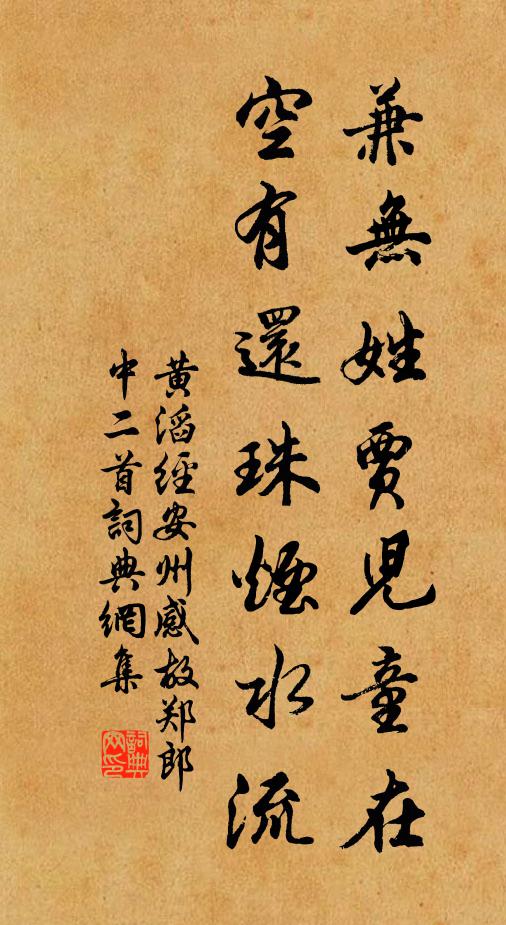 兼無姓賈兒童在
空有還珠煙水流
黃滔經安州感故郑郎
中二首詞典網集
詞典網印